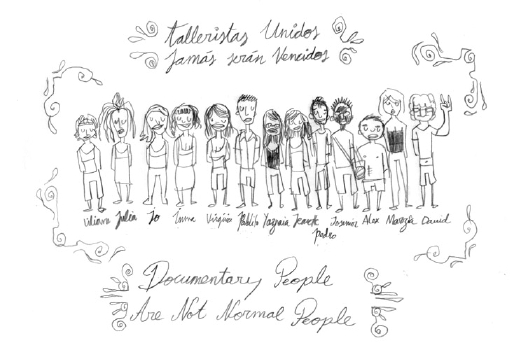 Talleristas Unidos
Jamás serán Vencidos
Viliana Julia Jo Inma Virginia Pablito Yazmin Jeanette Pedro Josemar Alex Marozia David
Documentary People
Are Not Normal People